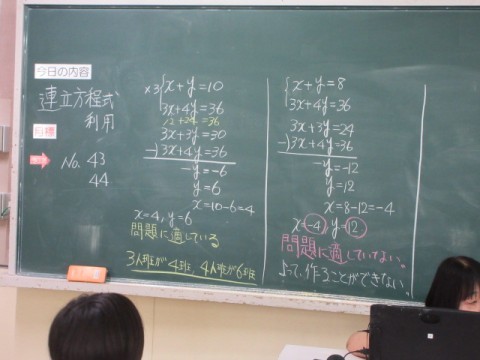 今日の内容
連立方程式
利用
目標
No. 43
44
×3 { x+y=10
3x+4y=36
12+24=36
3x+3y=30
-) 3x+4y=36
-y=-6
y=6
x=10-6=4
x=4, y=6
問題に適している
3人班が4班, 4人班が6班
{ x+y=8
3x+4y=36
3x+3y=24
-) 3x+4y=36
-y=-12
y=12
x=8-12=-4
x=-4, y=12
問題に適していない。
よって、作ることができない。